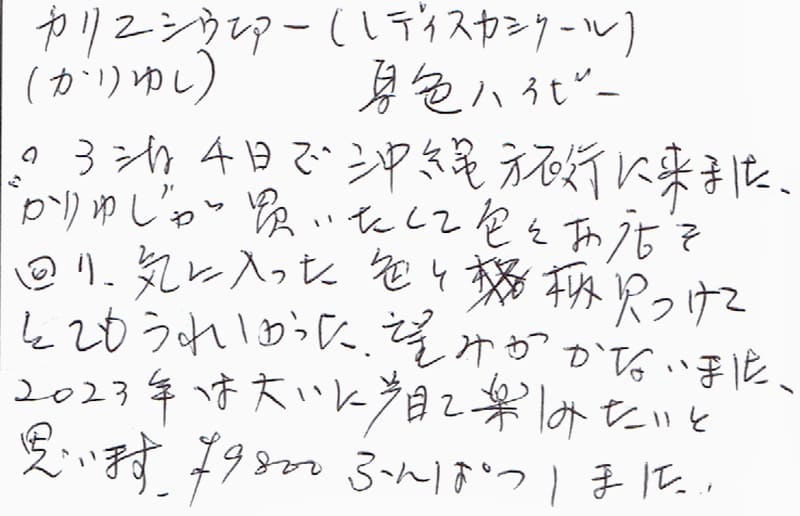 カリユシウェアー(レディスカジュアル)
(かりゆし) 夏色ハイビー
の 3泊 4日で 沖縄旅行に来ました、
かりゆしが 買いたくて 色々お店を
回り、気に入った 色々 柄 見つけて
とてもうれしかった、望みがかないました、
2023年は大いに着て楽しみたいと
思います、¥9800 ふんぱつしました、